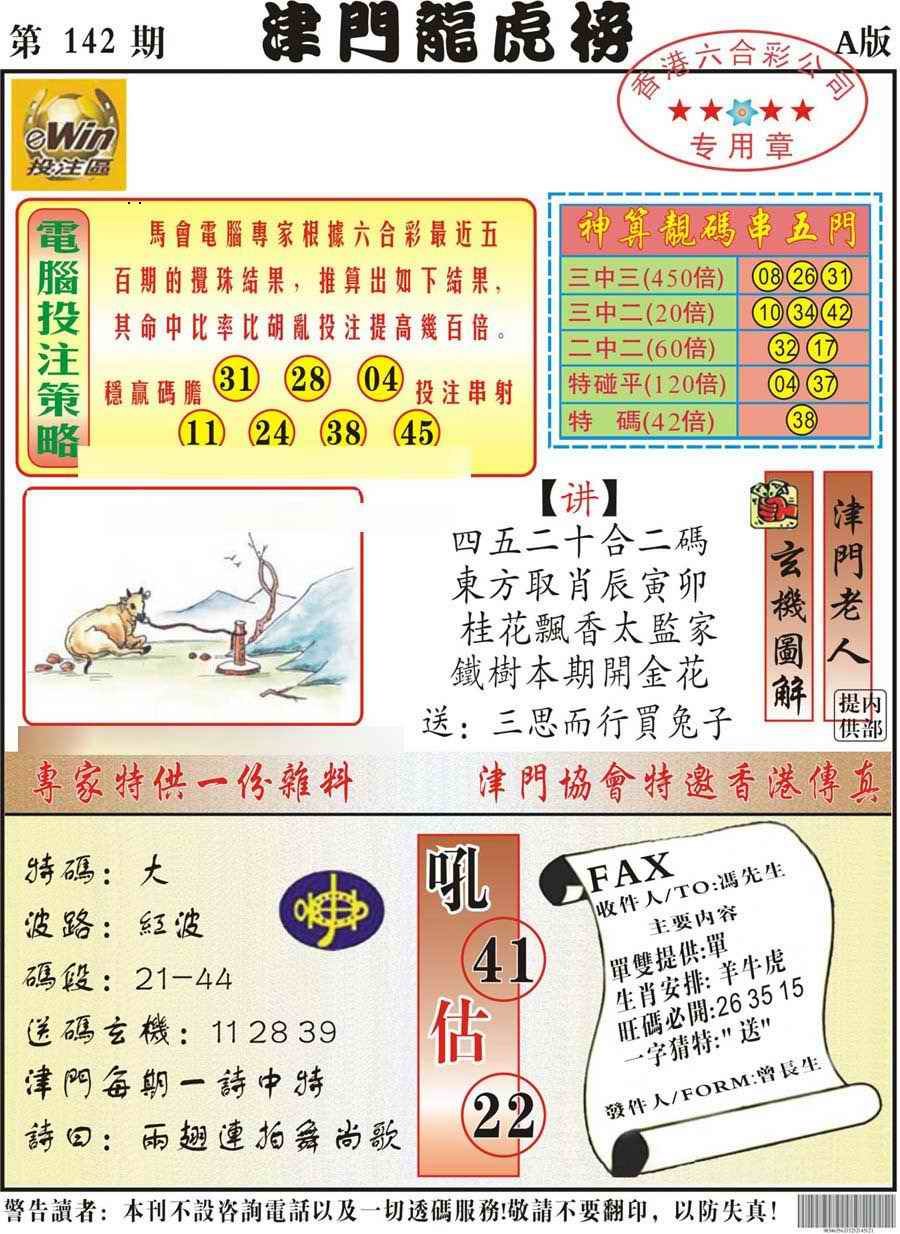 第 142 期
津門龍虎榜
A版
香港六合彩公司
专用章
eWin
投注區
電腦投注策略
馬會電腦專家根據六合彩最近五
百期的攪珠結果，推算出如下結果，
其命中比率比胡亂投注提高幾百倍。
穩贏碼膽 31 28 04 投注串射
11 24 38 45
神算靚碼串五門
三中三(450倍) 08 26 31
三中二(20倍) 10 34 42
二中二(60倍) 32 17
特碰平(120倍) 04 37
特 碼(42倍) 38
【讲】
四五二十合二碼
東方取肖辰寅卯
桂花飄香太監家
鐵樹本期開金花
送：三思而行買兔子
玄機圖解
津門老人
提供
内部
專家特供一份雜料
津門協會特邀香港傳真
特碼：大
波路：紅波
碼段：21-44
送碼玄機：11 28 39
津門每期一詩中特
詩曰：兩翅連拍舞尚歌
吼
41
估
22
FAX
收件人/TO:馮先生
主要内容
單雙提供:單
生肖安排:羊牛虎
旺碼必開:26 35 15
一字猜特:"送"
發件人/FORM:曾長生
警告讀者：本刊不設咨詢電話以及一切透碼服務!敬請不要翻印，以防失真！